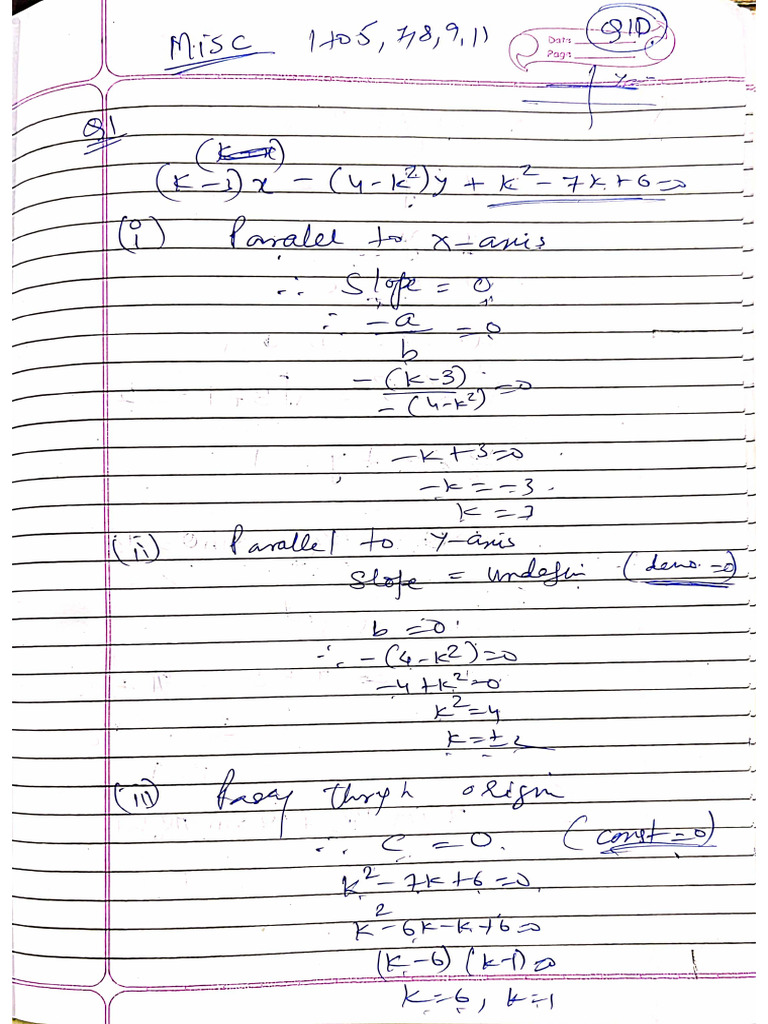 Misc 1 to 5, 7, 8, 9, 11
Q10
Date:
Page:
y=
Q1
(k-x)
(k-3)x - (4-k²)y + k² - 7k + 6 = 0
(i) Parallel to x-axis
∴ Slope = 0
∴ -a/b = 0
-(k-3)/-(4-k²) = 0
-k+3=0
-k = -3
k = 3
(ii) Parallel to y-axis
Slope = undefin (deno. = 0)
b = 0
∴ -(4-k²) = 0
-4+k²=0
k²=4
k=±2
(iii) origin
∴ C = 0. (const = 0)
k² - 7k + 6 = 0
k² - 6k - k + 6 = 0
(k-6) (k-1) = 0
k=6, k=1